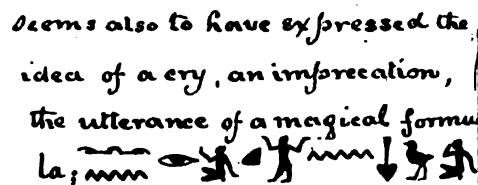 seems also to have expressed the
idea of a cry, an imprecation,
the utterance of a magical formu
la;